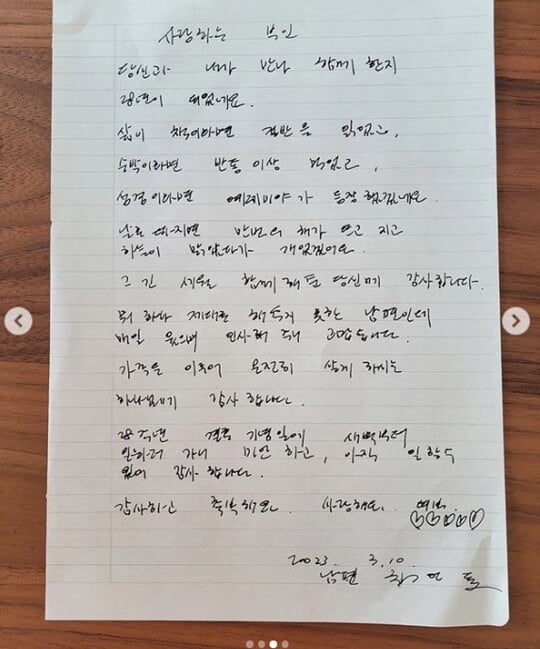 사랑하는 부인
당신과 내가 만나 함께 한지
28년이 되었네요.
삶이 책이라면 절반을 읽었고,
수박이라면 반통이상 먹었고,
성경이라면 예레미야가 등장했겠네요.
날로 따지면 만번의 해가 뜨고 지고
하늘이 맑았다가 개었겠어요.
그 긴 세월 함께해준 당신께 감사합니다.
뭐 하나 제대로 해준게 못하는 남편인데
매일 웃으며 인사해 줘서 고맙습니다.
가정을 이루어 온전히 살게 하시는
하나님께 감사합니다.
28주년 결혼 기념일에 새벽부터
일하러 가니 미안하고, 아직 일할수
있어 감사합니다.
감사하고 축복해요. 사랑해요. 여보.
2023. 3. 10.
남편